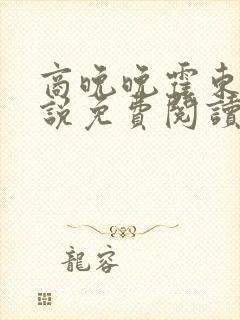 商晚晚霍東
說免費閱讀
龍容